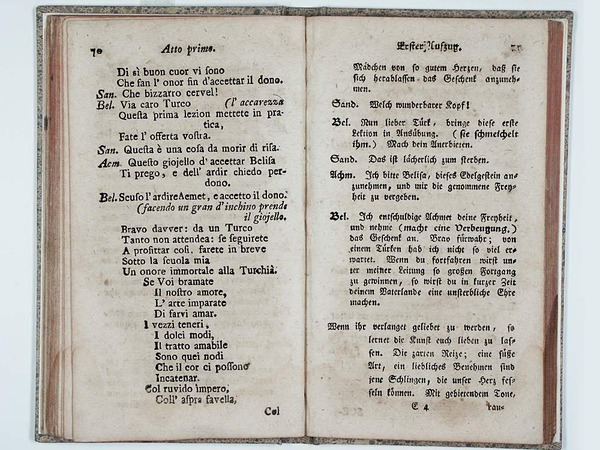 70
Atto primo.
Di sì buon cuor vi ſono
Che fan l' onor fin d'accettar il dono.
San. Che bizzarro cervel!
Bel. Via caro Turco (l' accarezza
Queſta prima lezion mettete in pra-
tica,
Fate l' offerta voſtra.
San. Queſta è una coſa da morir di riſa.
Acm. Queſto giojello d' accettar Beliſa
Ti prego, e dell' ardir chiedo per-
dono.
Bel. Scuſo l'ardire Acmet, e accetto il dono.
(facendo un gran d'inchino prende
il giojello.
Bravo davver: da un Turco
Tanto non attendea: ſe ſeguirete
A profittar coſi. farete in breve
Sotto la ſcuola mia
Un onore immortale alla Turchià.
Se Voi bramate
Il noſtro amore,
L' arte imparate
Di farvi amar.
I vezzi teneri,
I dolci modi,
Il tratto amabile
Sono quei nodi
Che il cor ci poſſono
Incatenar.
Col ruvido impero,
Coll' aſpra favella,
Col
Erſter Aufzug.
71
Mädchen von ſo gutem Herzen, daß ſie
ſich herablaſſen das Geſchenk anzuneh-
men.
Sand. Welſch wunderbarer Kopf!
Bel. Nun lieber Türk, bringe dieſe erſte
Lektion in Ausübung. (ſie ſchmeichelt
ihm.) Mach dein Anerbieten.
Sand. Das iſt lächerlich zum ſterben.
Achm. Ich bitte Beliſa, dieſes Edelgeſtein an-
zunehmen, und mir die genommene Frey-
heit zu vergeben.
Bel. Ich entſchuldige Achmet deine Freyheit,
und nehme (macht eine Verbeugung.)
das Geſchenk an. Brav fürwahr; von
einem Türken hab ich nicht ſo viel er-
wartet. Wenn du fortfahren wirſt un-
ter meiner Leitung ſo großen Fortgang
zu gewinnen, ſo wirſt du in kurzer Zeit
deinem Vaterlande eine unſterbliche Ehre
machen.
Wenn ihr verlanget geliebet zu werden, ſo
lernet die Kunſt euch lieben zu laſ-
ſen. Die zarten Reize; eine ſüße
Art, ein liebliches Benehmen ſind
jene Schlingen, die unſer Herz feſ-
ſeln können. Mit gebietendem Tone,
E 4
rau-